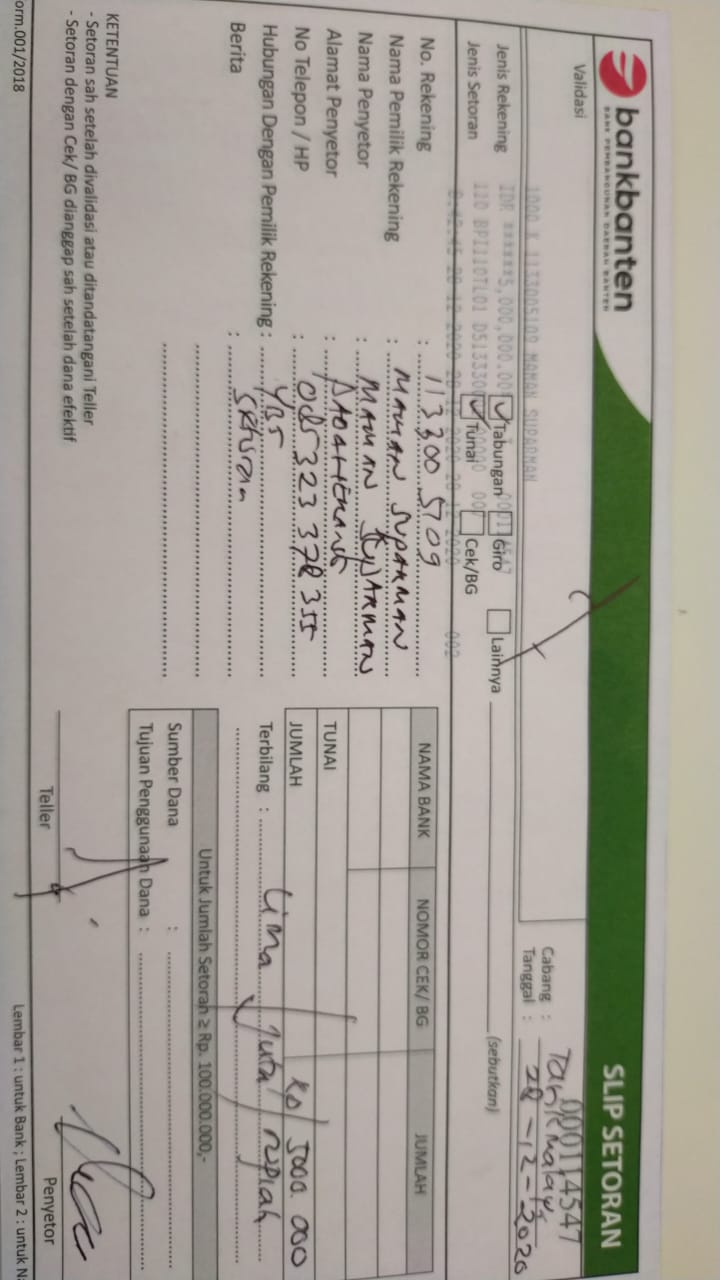 bankbanten
BANK PEMBANGUNAN DAERAH BANTEN
SLIP SETORAN
000114547
Validasi
1000 K 1133005109 MAMAN SUPARMAN
Cabang : Tasikmalaya
Tanggal : 28-12-2020
IDR ******5,000,000.00
110 BPI1107L01 DS13330
28 12 2020
002
Jenis Rekening Tabungan Giro Lainnya (sebutkan)
Jenis Setoran Tunai Cek/BG
No. Rekening : 113300 5109
Nama Pemilik Rekening : MAMAN SUPARMAN
Nama Penyetor : MAMAN SUPARMAN
Alamat Penyetor :
No Telepon / HP : 085 323 378 355
Hubungan Dengan Pemilik Rekening : YBS
Berita : Setoran
NAMA BANK NOMOR CEK/ BG JUMLAH
TUNAI
JUMLAH 5000.000
Terbilang : Lima Juta rupiah
Untuk Jumlah Setoran ≥ Rp. 100.000.000,-
Sumber Dana :
Tujuan Penggunaan Dana :
KETENTUAN
- Setoran sah setelah divalidasi atau ditandatangani Teller
- Setoran dengan Cek/ BG dianggap sah setelah dana efektif
Teller
Penyetor
orm.001/2018
Lembar 1 : untuk Bank ; Lembar 2 : untuk